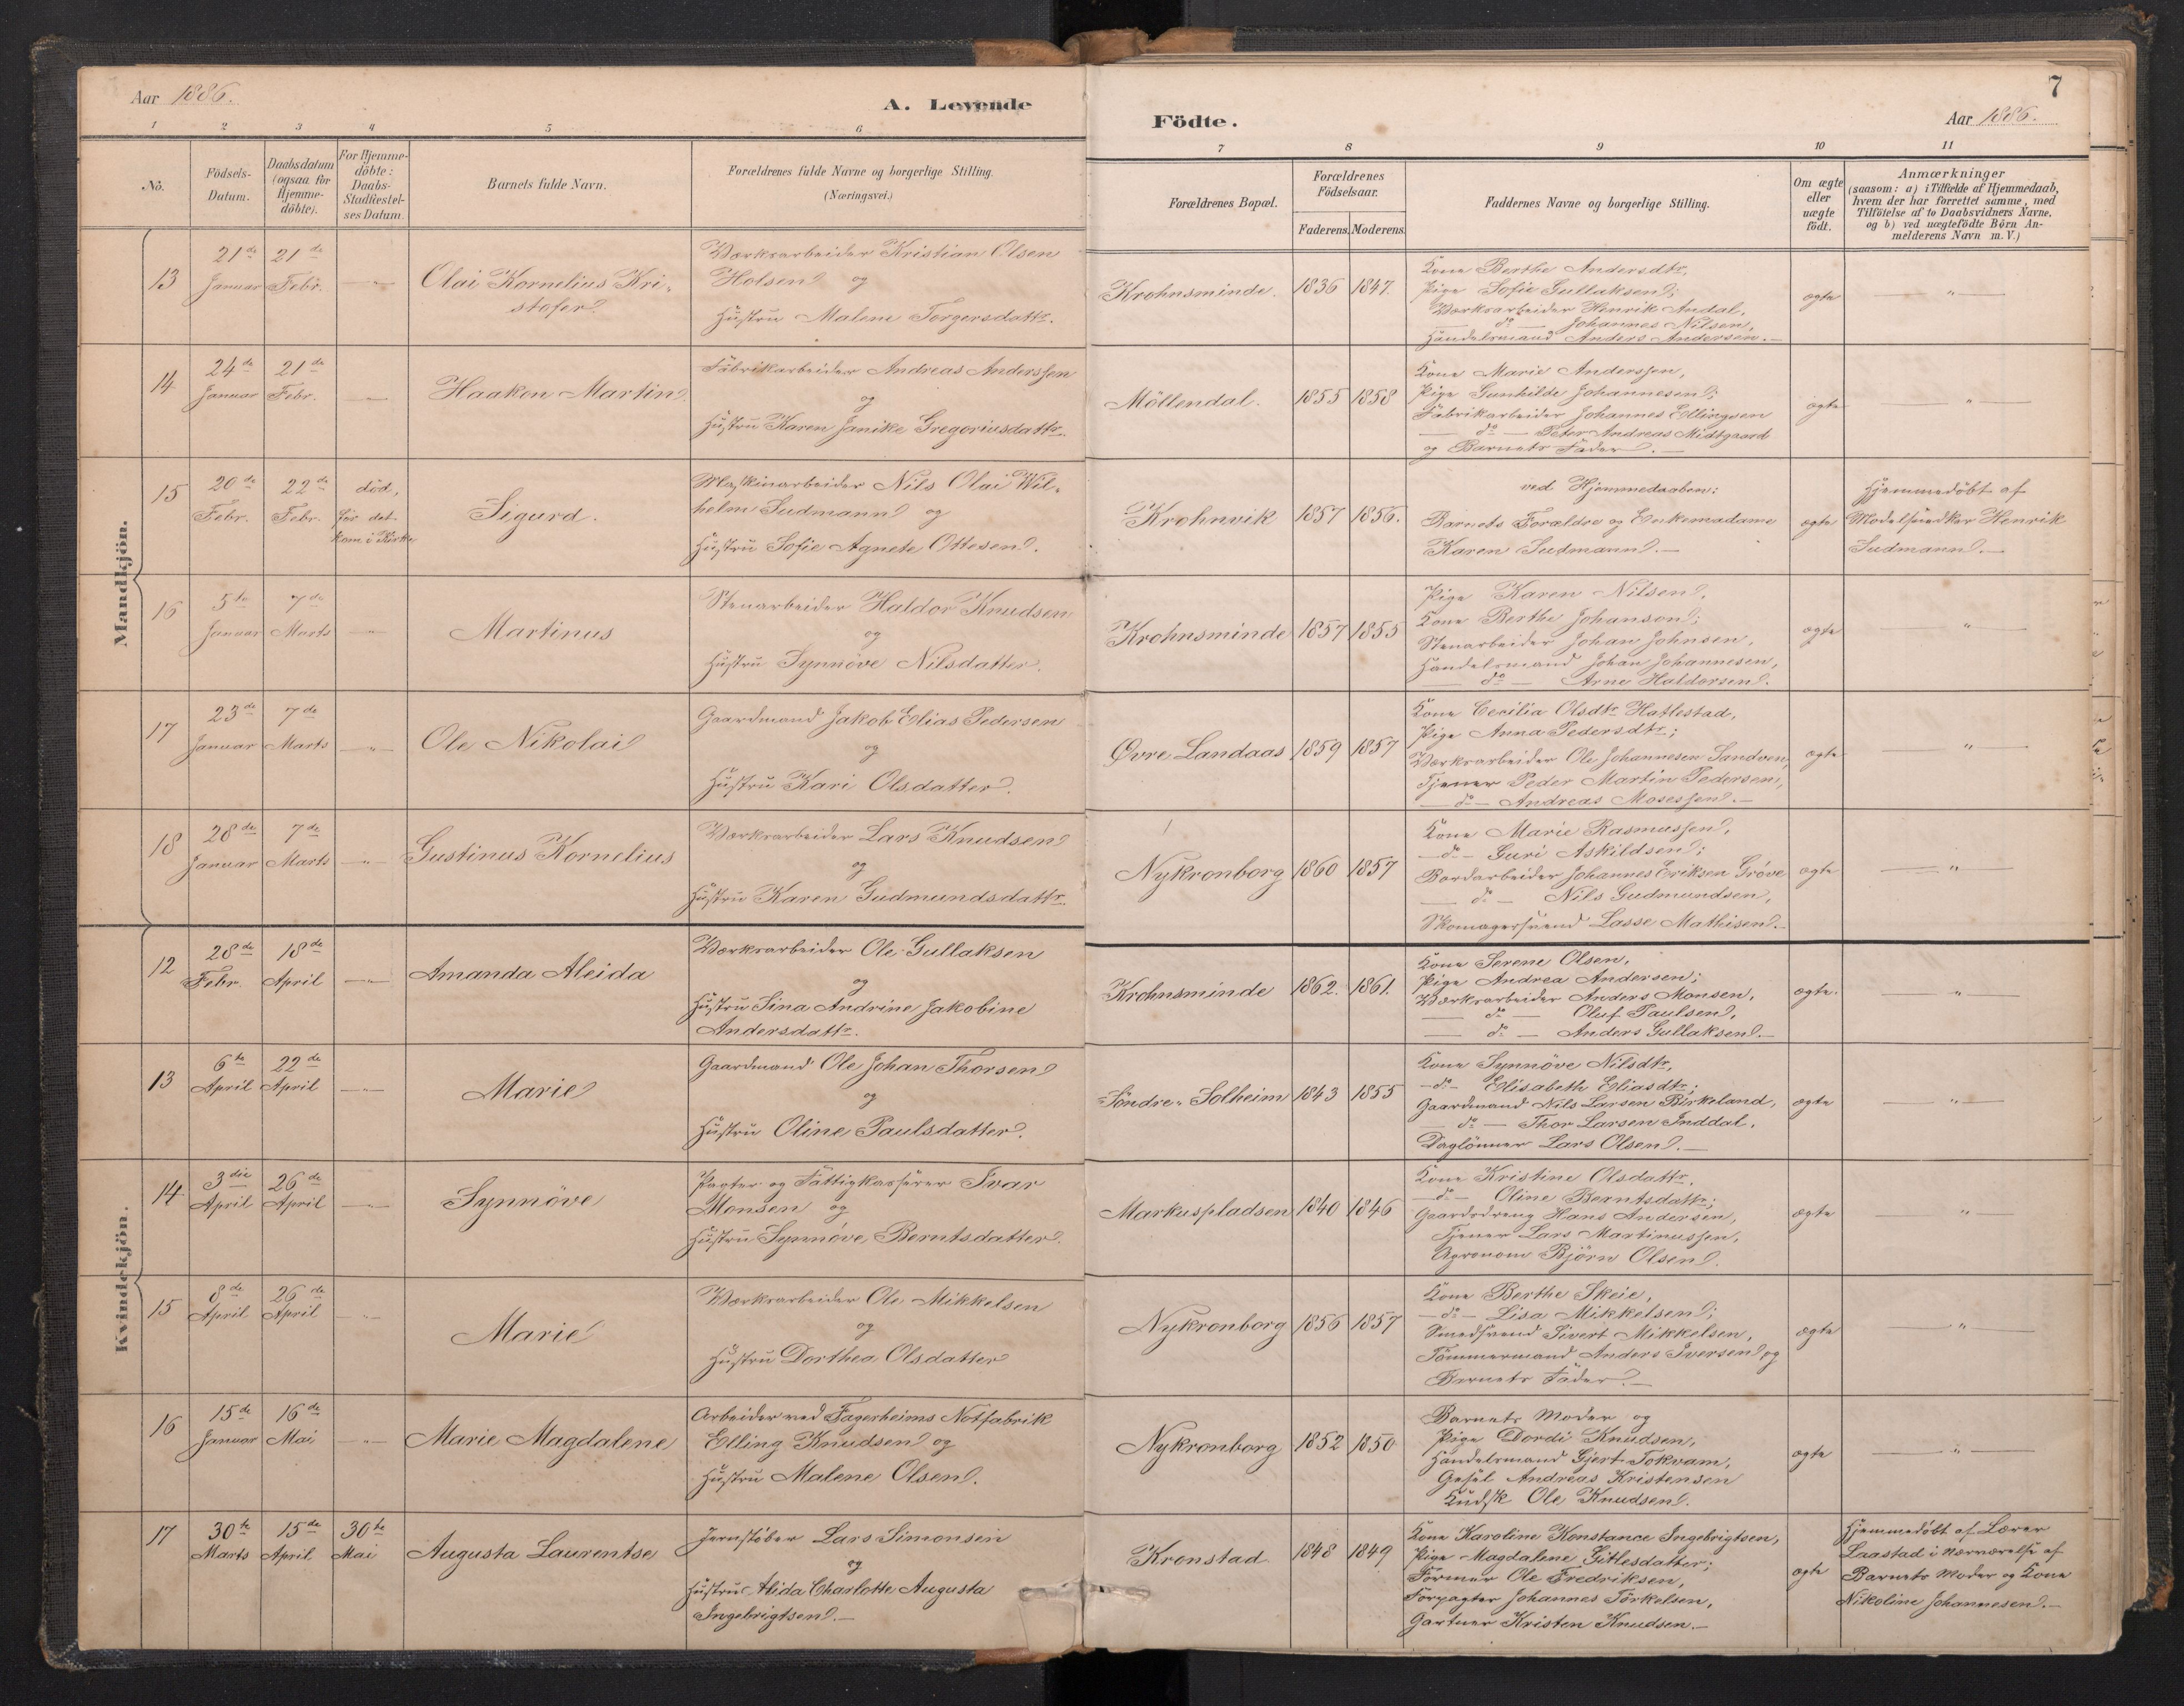 Aar 1886.
A. Levende
1 2 3 4 5 6
No.
Födsels-
Datum.
Daabsdatum
(ogsaa for
Hjemme-
döbte).
For Hjemme-
döbte:
Daabs-
Stadfæstel-
ses Datum.
Barnets fulde Navn.
Forældrenes fulde Navne og borgerlige Stilling.
(Næringsvei.)
Mandkjön.
13 21de Januar 21de Febr. — " —
Olai Kornelius Kri-
stofer
Værksarbeider Kristian Olsen
Holsen og
Hustru Malene Torgersdattr.
14 24de Januar 21de Febr. —
Haakon Martin
Fabrikarbeider Andreas Anderssen
og
Hustru Karen Janike Gregoriusdattr.
15 20de Febr. 22de Febr.
död,
för det
kom i Kirke
Sigurd.
Maskinarbeider Nils Olai Wil-
helm Sudmann og
Hustru Sofie Agnete Ottesen.
16 5te Januar 7de Marts — " —
Martinus
Stenarbeider Haldor Knudsen
og
Hustru Synnöve Nilsdatter.
17 23de Januar 7de Marts — " —
Ole Nikolai
Gaardmand Jakob Elias Pedersen
og
Hustru Kari Olsdatter.
18 28de Januar 7de Marts — " —
Gustinus Kornelius
Værksarbeider Lars Knudsen
og
Hustru Karen Gudmundsdattr.
Kvindekjön.
12 28de Febr. 18de April — " —
Amanda Aleida
Værksarbeider Ole Gullaksen
og
Hustru Sina Andrine Jakobine
Andersdattr.
13 6te April 22de April — " —
Marie
Gaardmand Ole Johan Thorsen
og
Hustru Oline Paulsdatter.
14 3die April 26de April — " —
Synnöve
Pagter og Fattigkasserer Ivar
Monsen og
Hustru Synnöve Berntsdatter.
15 8de April 26de April — " —
Marie
Værksarbeider Ole Mikkelsen
og
Hustru Dorthea Olsdatter
16 15de Januar 16de Mai — " —
Marie Magdalene
Arbeider ved Fagerheims Notfabrik
Elling Knudsen og
Hustru Malene Olsen.
17 30te Marts 15de April 30te Mai
Augusta Laurentse
Jernstöber Lars Simonsen
og
Hustru Alida Charlotte Augusta
Ingebrigtsen.—
7
Födte.
Aar 1886.
7 8 9 10 11
Forældrenes Bopæl.
Forældrenes
Födselsaar.
Faderens. Moderens.
Faddernes Navne og borgerlige Stilling.
Om ægte
eller
uægte
födt.
Anmærkninger
(saasom: a) i Tilfælde af Hjemmedaab,
hvem der har forrettet samme, med
Tilföielse af to Daabsvidners Navne,
og b) ved uægtefödte Börn An-
melderens Navn m. V.)
Krohnsminde. 1836 1847.
Kone Berthe Andersdtr,
Pige Sofie Gullaksen;
Værksarbeider Henrik Andal,
— do — Johannes Nilsen,
Handelsmand Anders Andersen.—
ægte — " —
Möllendal. 1855 1858
Kone Marie Anderssen,
Pige Gunhilde Johannesen;
Fabrikarbeider Johannes Ellingsen
— do — Peter Andreas Midtgaard
og Barnets Fader.—
ægte — " —
Krohnvik 1857 1856.
ved Hjemmedaaben:
Barnets Forældre og Enkemadame
Karen Sudmann.—
ægte
Hjemmedöbt af
Modelsnedker Henrik
Sudmann.—
Krohnsminde 1857 1855
Pige Karen Nilsen,
Kone Berthe Johanson;
Stenarbeider Johan Johnsen,
Handelsmand Johan Johannesen,
— do — Arne Haldorsen.
ægte "
Øvre Landaas 1859 1857
Kone Cecilia Olsdtr Hatlestad,
Pige Anna Pedersdtr;
Værksarbeider Ole Johannesen Sandven,
Tjener Peder Martin Pedersen,
— do — Andreas Mosessen.—
ægte — " —
Nykronborg 1860 1857
Kone Marie Rasmussen,
— do — Guri Askildsen;
Bordarbeider Johannes Eriksen Gröve
— do — Nils Gudmundsen,
Skomagersvend Lasse Mathisen.—
ægte — " —
Krohnsminde 1862. 1861.
Kone Serene Olsen,
Pige Andrea Andersen;
Værksarbeider Anders Monsen,
— do — Oluf Paulsen,
— do — Anders Gullaksen.—
ægte. "
Söndre-Solheim 1843 1855
Kone Synnöve Nilsdtr,
— do — Elisabeth Eliasdtr;
Gaardmand Nils Larsen Birkeland,
— do — Thor Larsen Inddal,
Daglönner Lars Olsen.—
ægte — " —
Markuspladsen 1840 1846
Kone Kristine Olsdattr,
— do — Oline Berntsdattr;
Gaardsdreng Hans Andersen,
Tjener Lars Martinussen,
Agronom Björn Olsen.
ægte — " —
Nykronborg 1856 1857
Kone Berthe Skeie,
— do — Lisa Mikkelsen;
Smedsvend Sivert Mikkelsen,
Tömmermand Anders Iversen og
Barnets Fader.—
ægte — " —
Nykronborg 1852 1850
Barnets Moder og
Pige Dordi Knudsen,
Handelsmand Gjert Tokvam,
Gesel Andreas Kristensen
Kudsk Ole Knudsen.
ægte — " —
Kronstad 1848 1849
Kone Karoline Konstance Ingebrigtsen,
Pige Magdalene Gitlesdatter;
Former Ole Fredriksen,
Forpagter Johannes Torkelsen,
Gartner Kristen Knudsen.—
ægte
Hjemmedöbt af Lærer
Laastad i Nærværelse af
Barnets Moder og Kone
Nikoline Johannesen.—